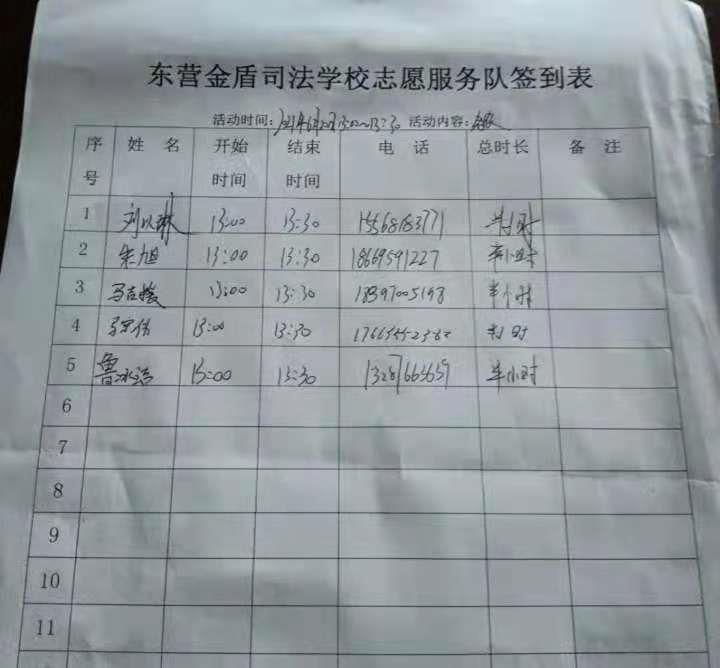 东营金盾司法学校志愿服务队签到表
活动时间: 13:00~13:30 活动内容:
序号 姓名 开始时间 结束时间 电话 总时长 备注
1 刘以琳 13:00 13:30 15568183771 半小时
2 朱旭 13:00 13:30 18669591227 半小时
3 13:00 13:30 18397005198 半小时
4 13:00 13:30 半小时
5 鲁冰洁 13:00 13:30 13287665659 半小时
6
7
8
9
10
11